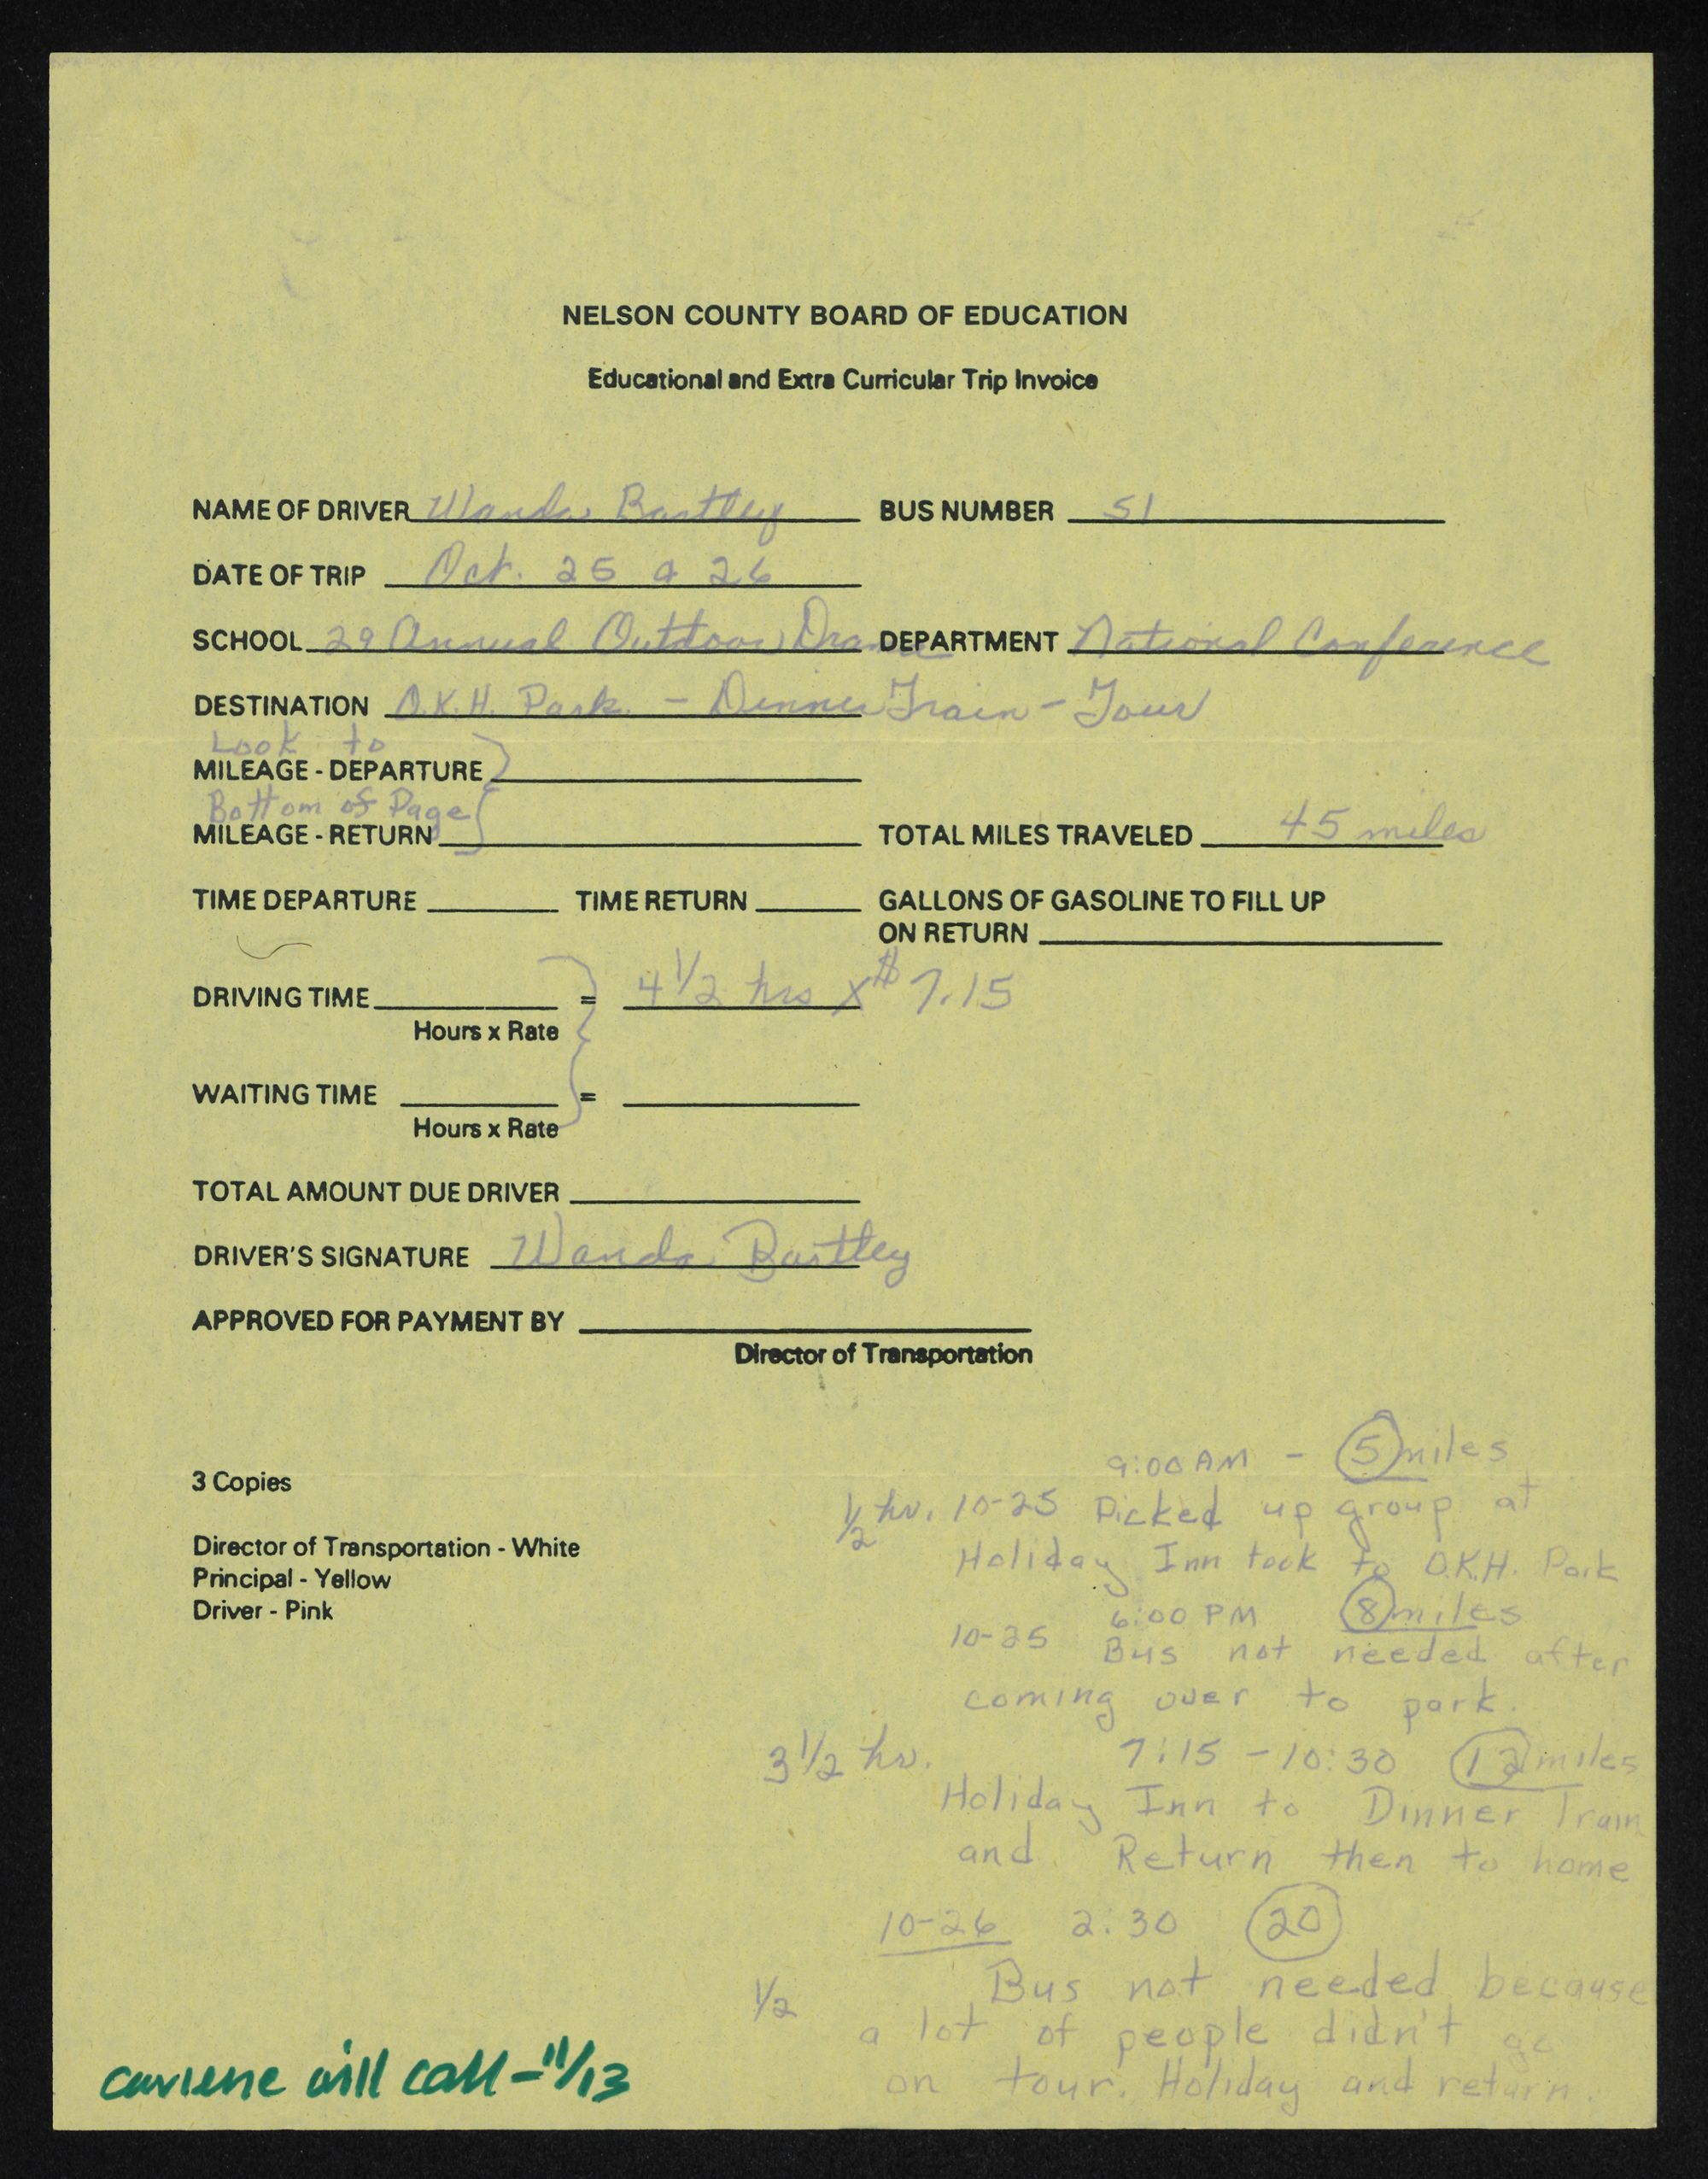 NELSON COUNTY BOARD OF EDUCATION
Educational and Extra Curricular Trip Invoice
NAME OF DRIVER Wanda Bartley BUS NUMBER 51
DATE OF TRIP Oct. 25 & 26
SCHOOL 29 Annual Outdoor Drama DEPARTMENT National Conference
DESTINATION O.K.H. Park - Dinner Train - Tour
Look to
MILEAGE - DEPARTURE
Bottom of Page
MILEAGE - RETURN TOTAL MILES TRAVELED 45 miles
TIME DEPARTURE TIME RETURN GALLONS OF GASOLINE TO FILL UP
ON RETURN
DRIVING TIME = 4 1/2 hrs x $ 7.15
Hours x Rate
WAITING TIME =
Hours x Rate
TOTAL AMOUNT DUE DRIVER
DRIVER'S SIGNATURE Wanda Bartley
APPROVED FOR PAYMENT BY
Director of Transportation
9:00 AM - 5 miles
3 Copies
1/2 hr. 10-25 Picked up group at
Director of Transportation - White
Holiday Inn took to O.K.H. Park
Principal - Yellow
Driver - Pink
6:00 PM 8 miles
10-25 Bus not needed after
coming over to park.
3 1/2 hr. 7:15 - 10:30 12 miles
Holiday Inn to Dinner Train
and Return then to home
10-26 2:30 20
1/2 Bus not needed because
a lot of people didn't go
on tour. Holiday and return.
carlene will call - 11/13